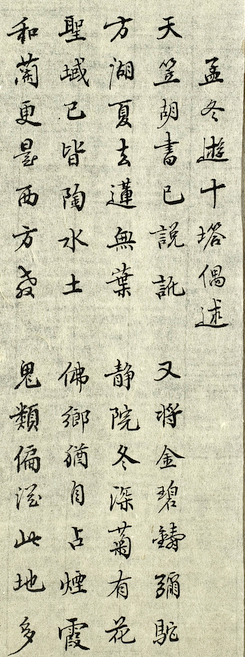 孟冬遊十塔偶述
天笠胡書已說訛　又將金碧鑄彌駝
方湖夏去蓮無葉　静院冬深菊有花
聖域已皆陶水土　佛鄉猶自占煙霞
和蘭更是西方教　鬼類偏滋此地多